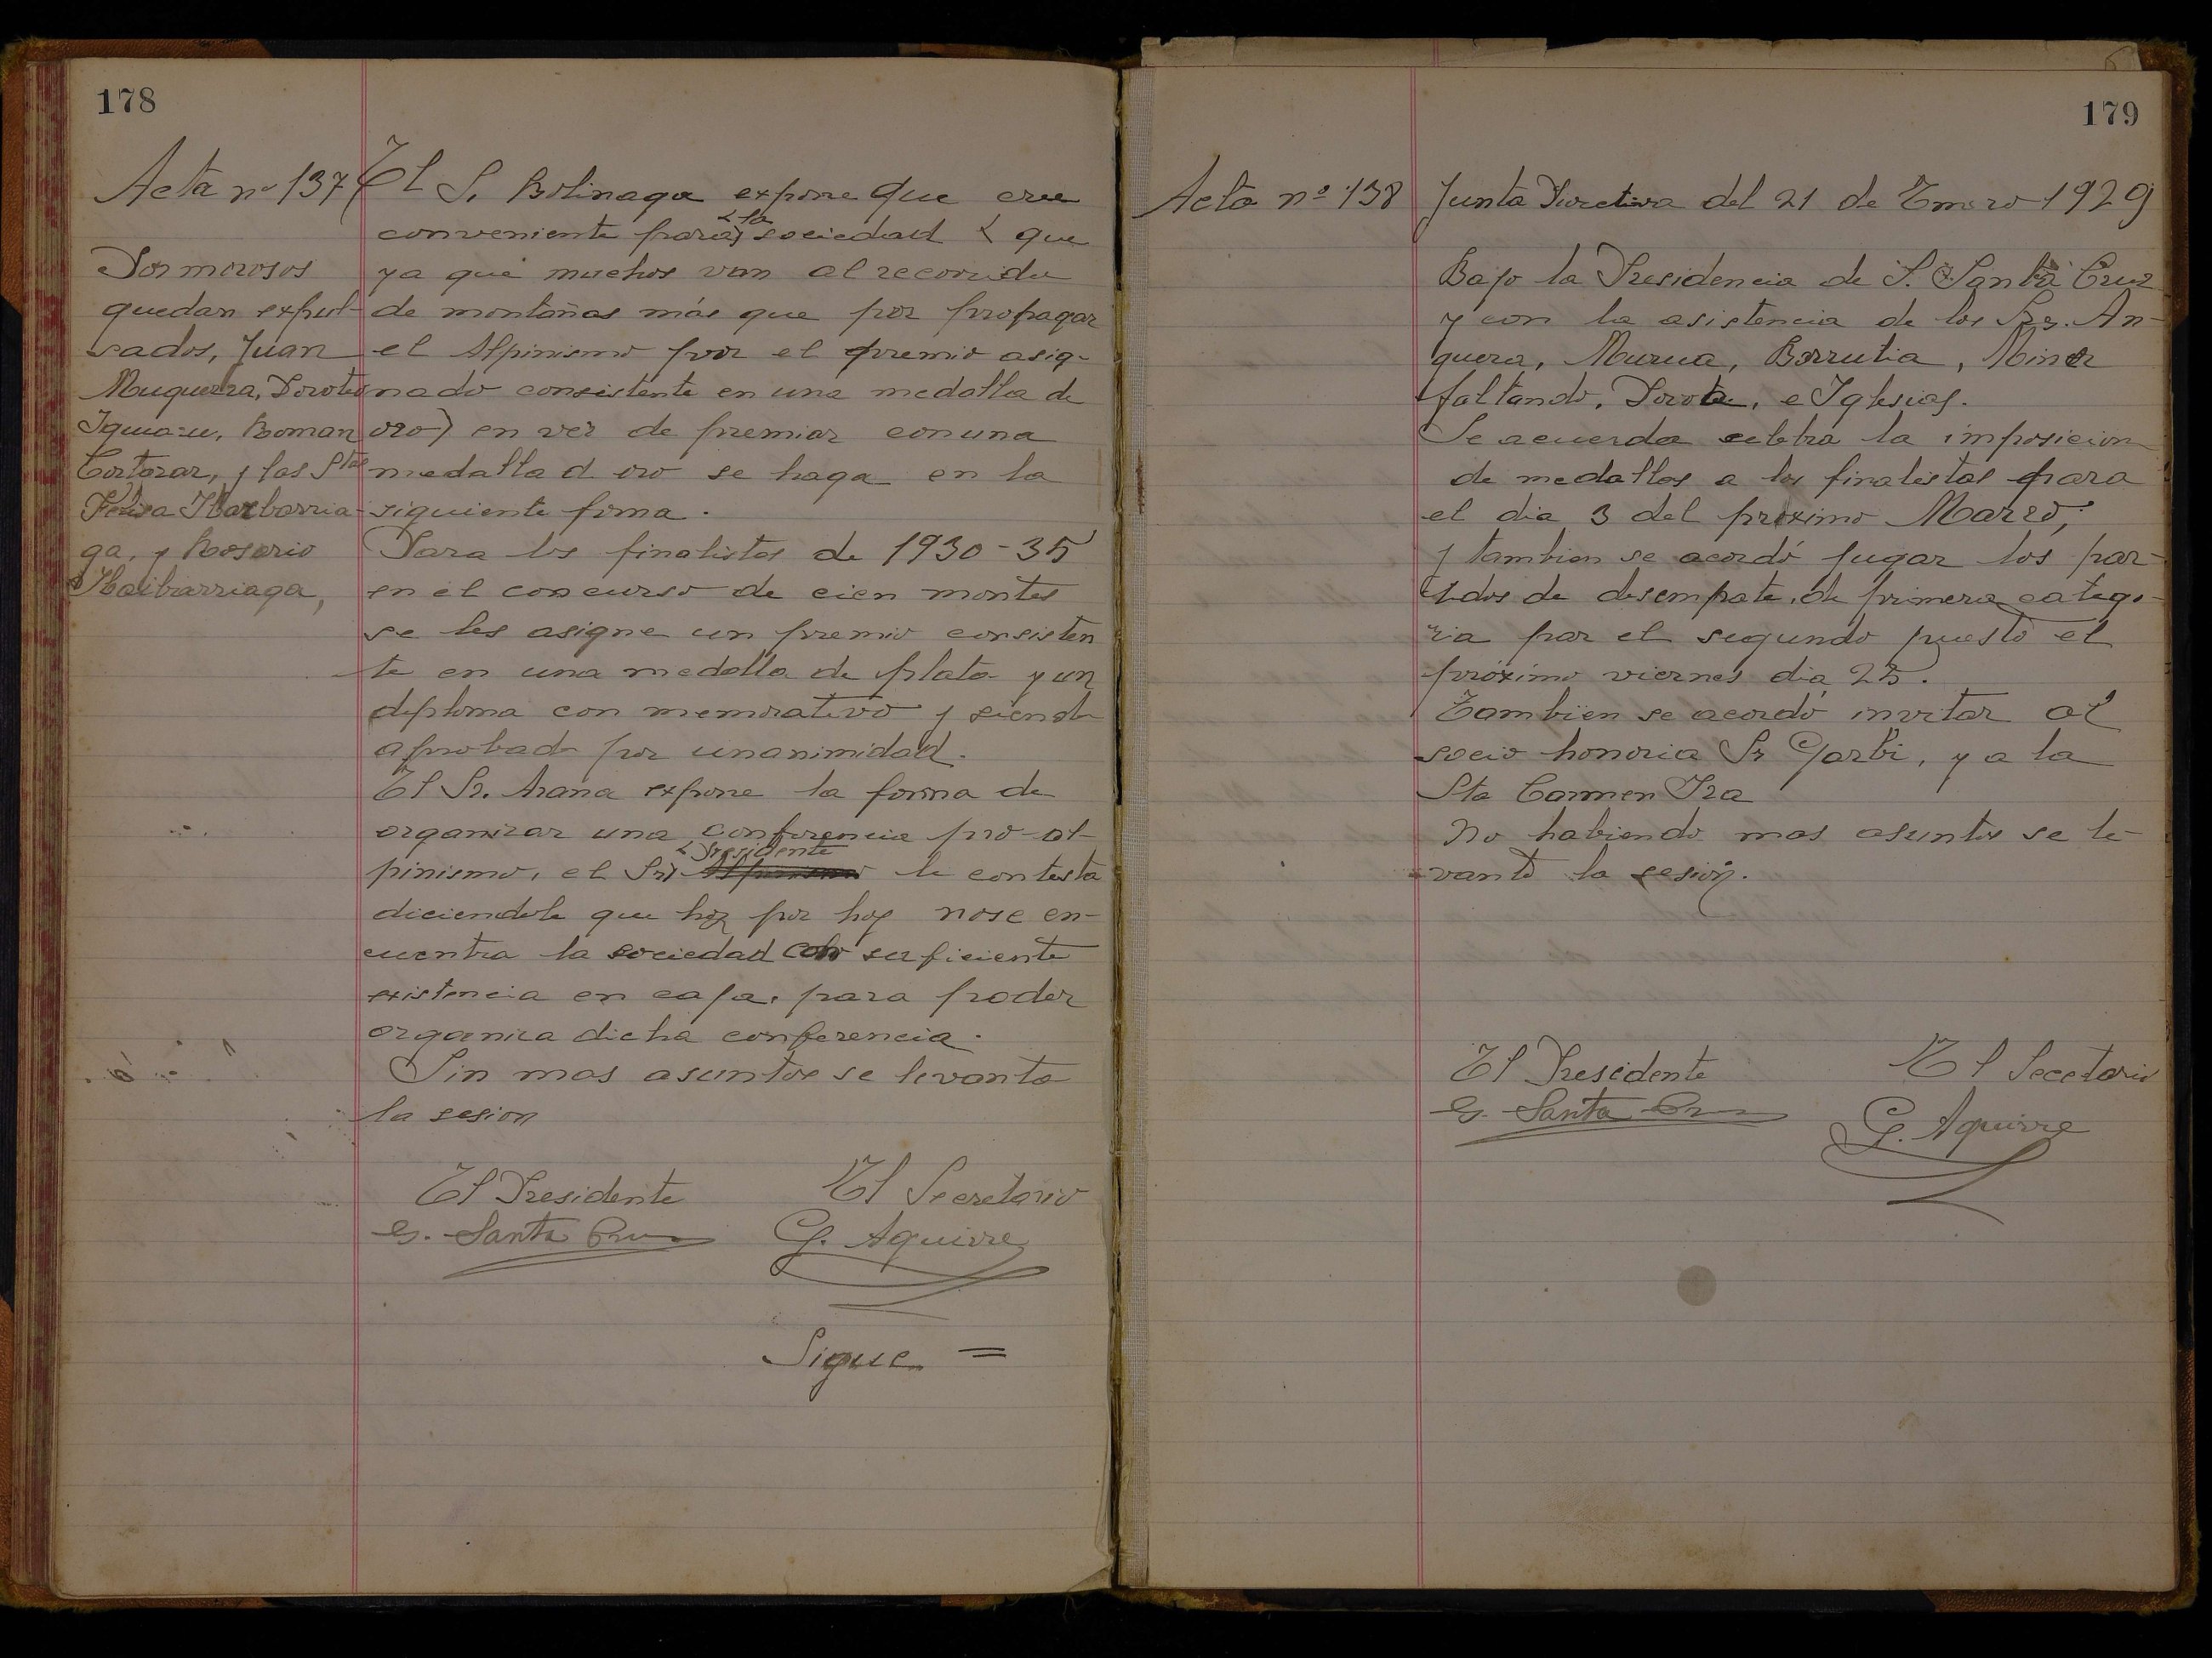 178
Acta nº 137
Por morosos
quedan expul-
sados, Juan
Muguerza, Doroteo
Iguazu, Roman
Cortazar, y las Stas
Felisa Ibarbarria-
ga, y Rosario
Ibaibarriaga,
El S. Bolinaga expone que cree
conveniente para la sociedad que
ya que muchos van al recorrido
de montañas más que por propagar
el Alpinismo por el premio asig-
nado consistente en una medalla de
oro) en vez de premiar con una
medalla d oro se haga en la
siguiente foma.
Para los finalistas de 1930-35
en el concurso de cien montes
se les asigne un premio consisten
te en una medalla de plata y un
diploma con memorativo y siendo
aprobado por unanimidad.
El Sr. Arana expone la forma de
organizar una conferencia pro-al-
pinismo, el Sr) Presidente le contesta
diciendole que hoy por hoy nose en-
cuentra la sociedad con suficiente
existencia en caja, para poder
organiza dicha conferencia.
Sin mas asuntos se levanta
la sesion
El Presidente
G. Santa Cruz
El Secretario
G. Aguirre
Sigue =
179
Acta nº 138
Junta Directiva del 21 de Enero 1929
Bajo la Presidencia de S. Santa Cruz
y con la asistencia de los Srs. An-
guera, Murua, Borrutia, Miner
faltando, Dorote, e Iglesias.
Se acuerda celebra la imposicion
de medallas a los finalistas para
el dia 3 del proximo Marzo;
y tambien se acordó jugar los par-
tidos de desempate de primera catego-
ria par el segundo puesto el
próximo viernes dia 25.
Tambien se acordó invitar al
socio honoria Sr Garbi, y a la
Sta Carmen Iza
No habiendo mas asuntos se le-
vantó la sesión.
El Presidente
G. Santa Cruz
El Secetario
G. Aguirre